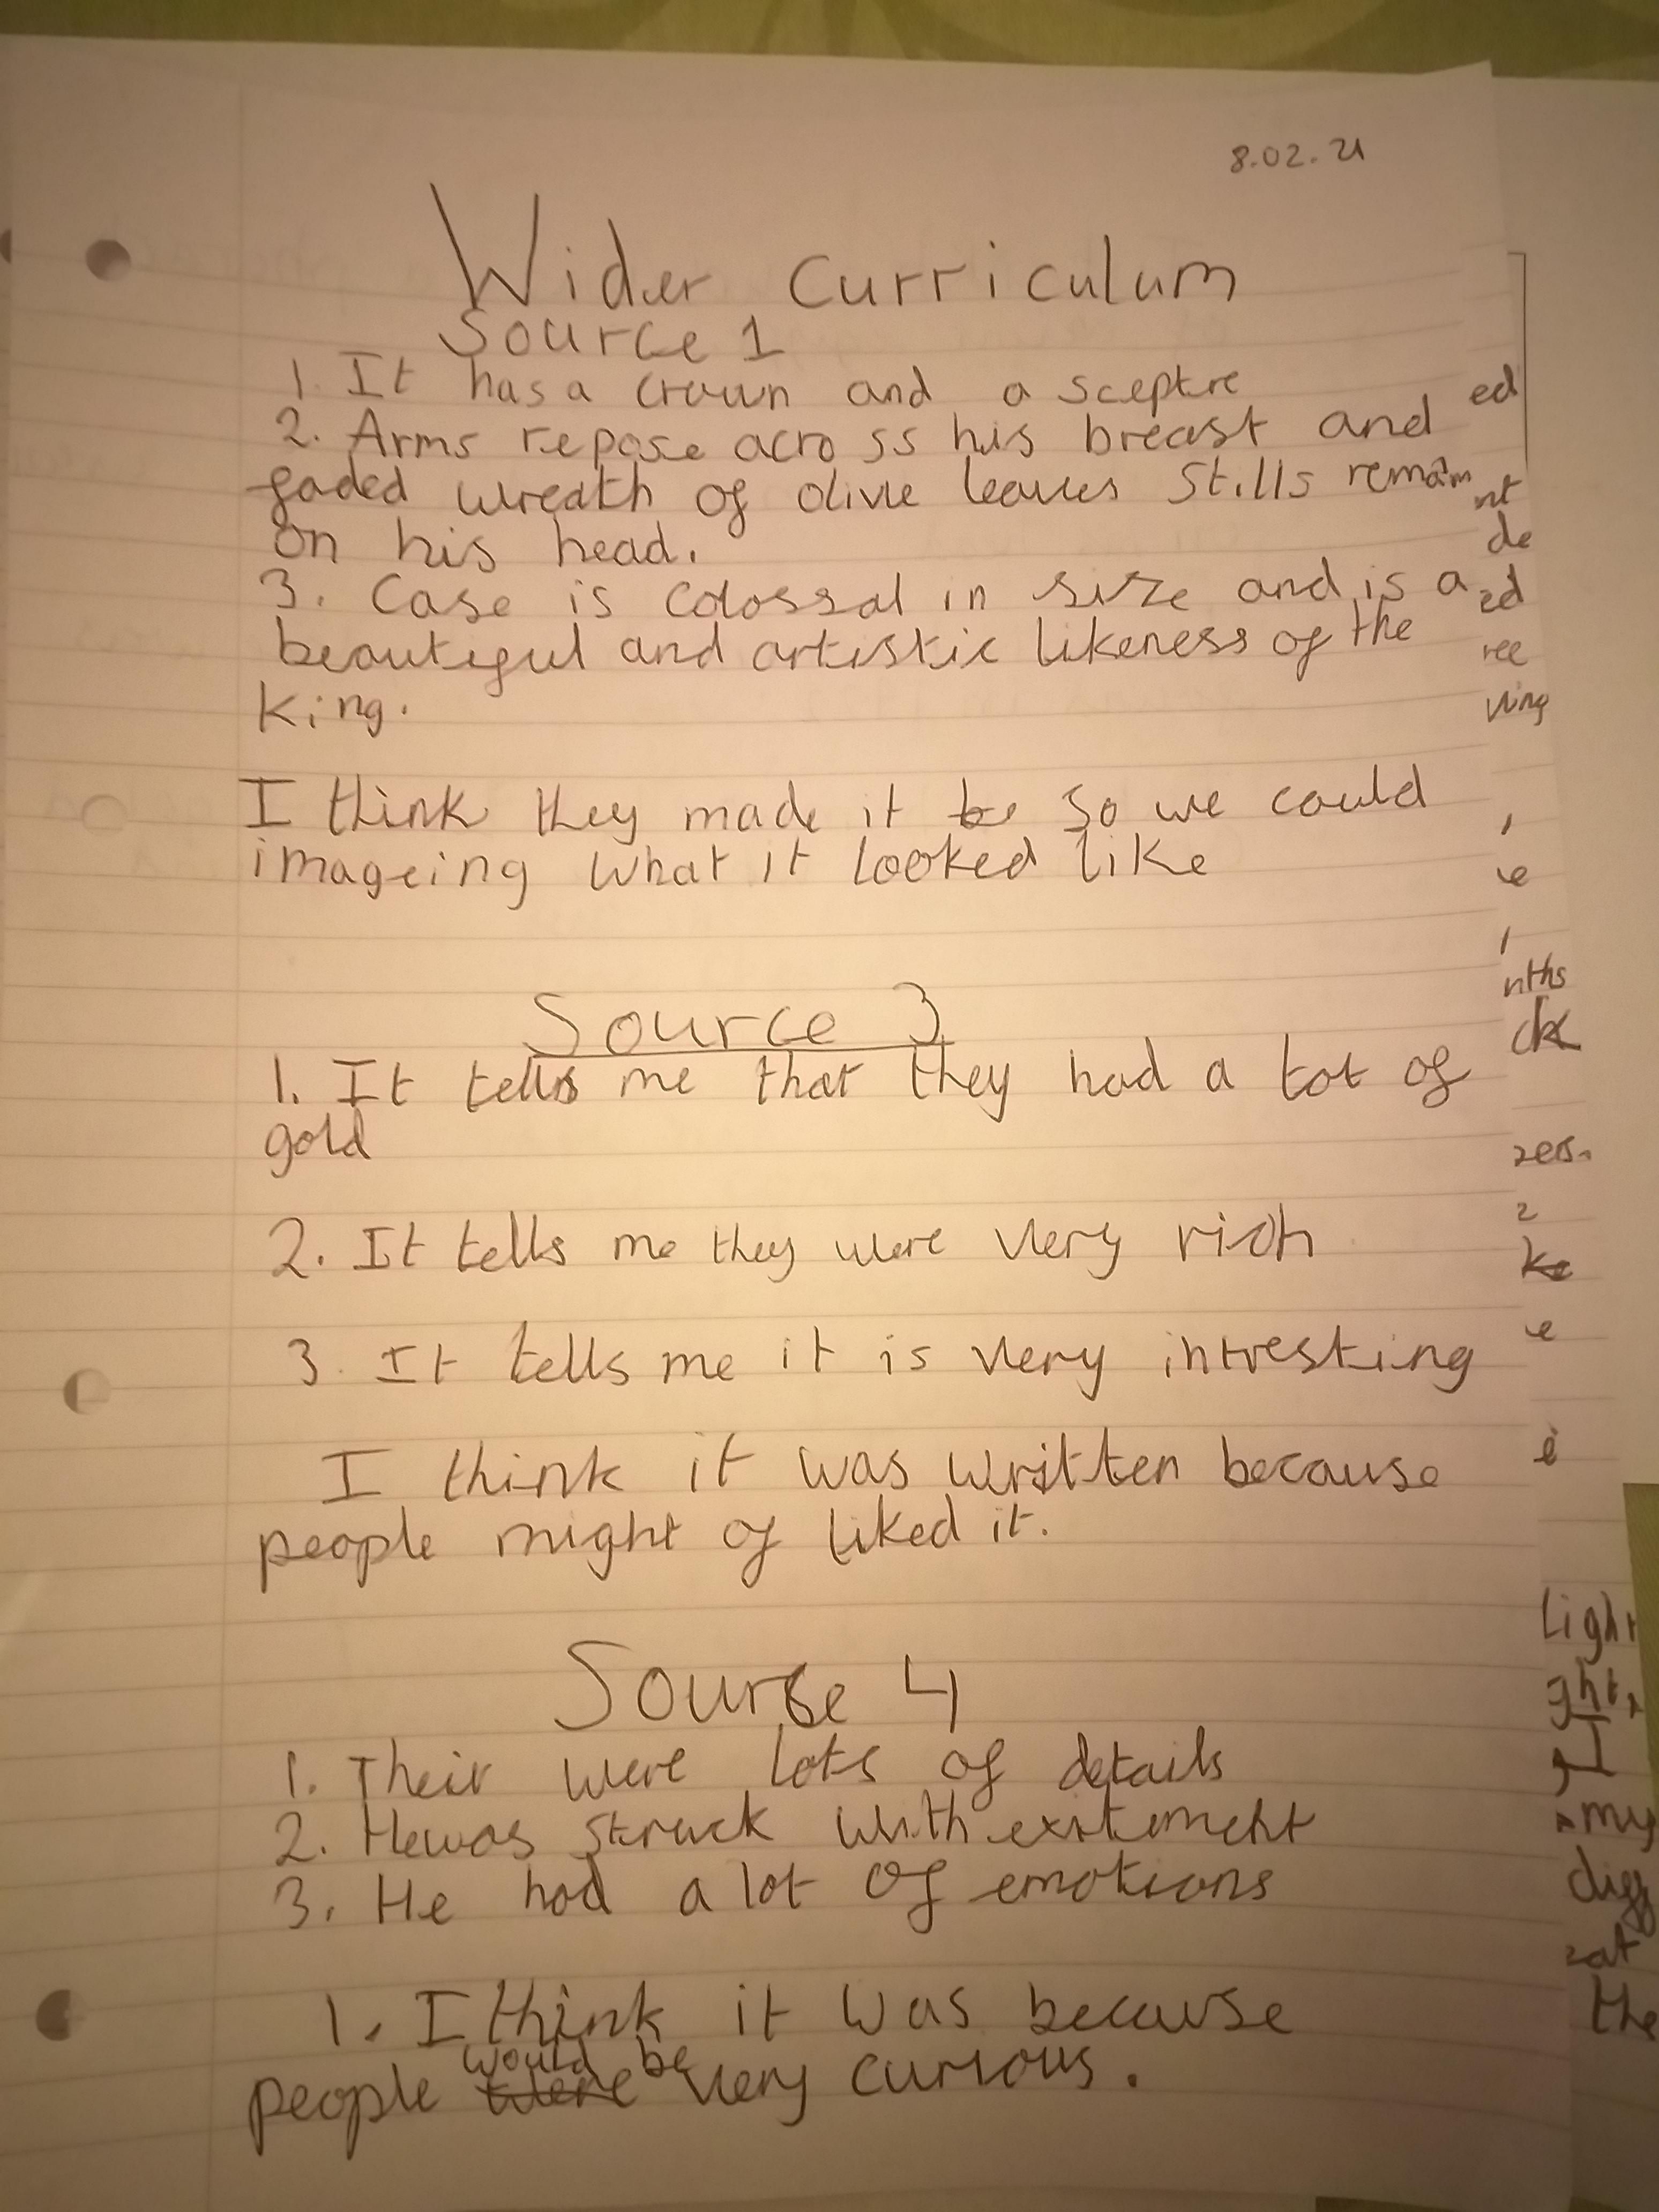 8.02.21
Wider Curriculum
Source 1
1. It has a crown and a sceptre
2. Arms repose across his breast and
faded wreath of olive leaves Stills remain
on his head.
3. Case is colossal in size and is a
beautiful and artistic likeness of the
King.
I think they made it be so we could
imageing what it looked like
Source 3
1. It tells me that they had a lot of
gold
2. It tells me they were very rich
3. It tells me it is very intresting
I think it was written because
people might of liked it.
Source 4
1. Their were lots of details
2. He was struck with exitement
3. He had a lot of emotions
1. I think it was because
people were would be very curious.
ed
nt
de
ed
ree
ving
,
e
,
nths
ck
ke
e
e
Light
ght,
I
my
digg
the